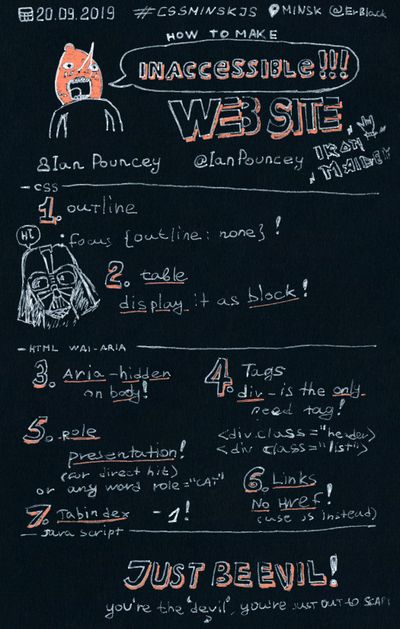 20.09.2019 #CSSMINSKJS MINSK @ErBlack
HOW TO MAKE
INACCESSIBLE!!!
WEB SITE
Ian Pouncey @IanPouncey
IRON
MAIDEN
CSS
1. outline
:focus {outline: none}!
HI
2. table
display it as block!
HTML WAI-ARIA
3. Aria-hidden
on body!
4. Tags
div - is the only
need tag!
<div class="header>
<div class="list">
5. role
presentation!
(for direct hit)
or any word role="CAT"
6. Links
No Href!
(use js instead)
7. Tabindex -1!
Java script
JUST BE EVIL!
you're the "devil", you're JUST OUT TO